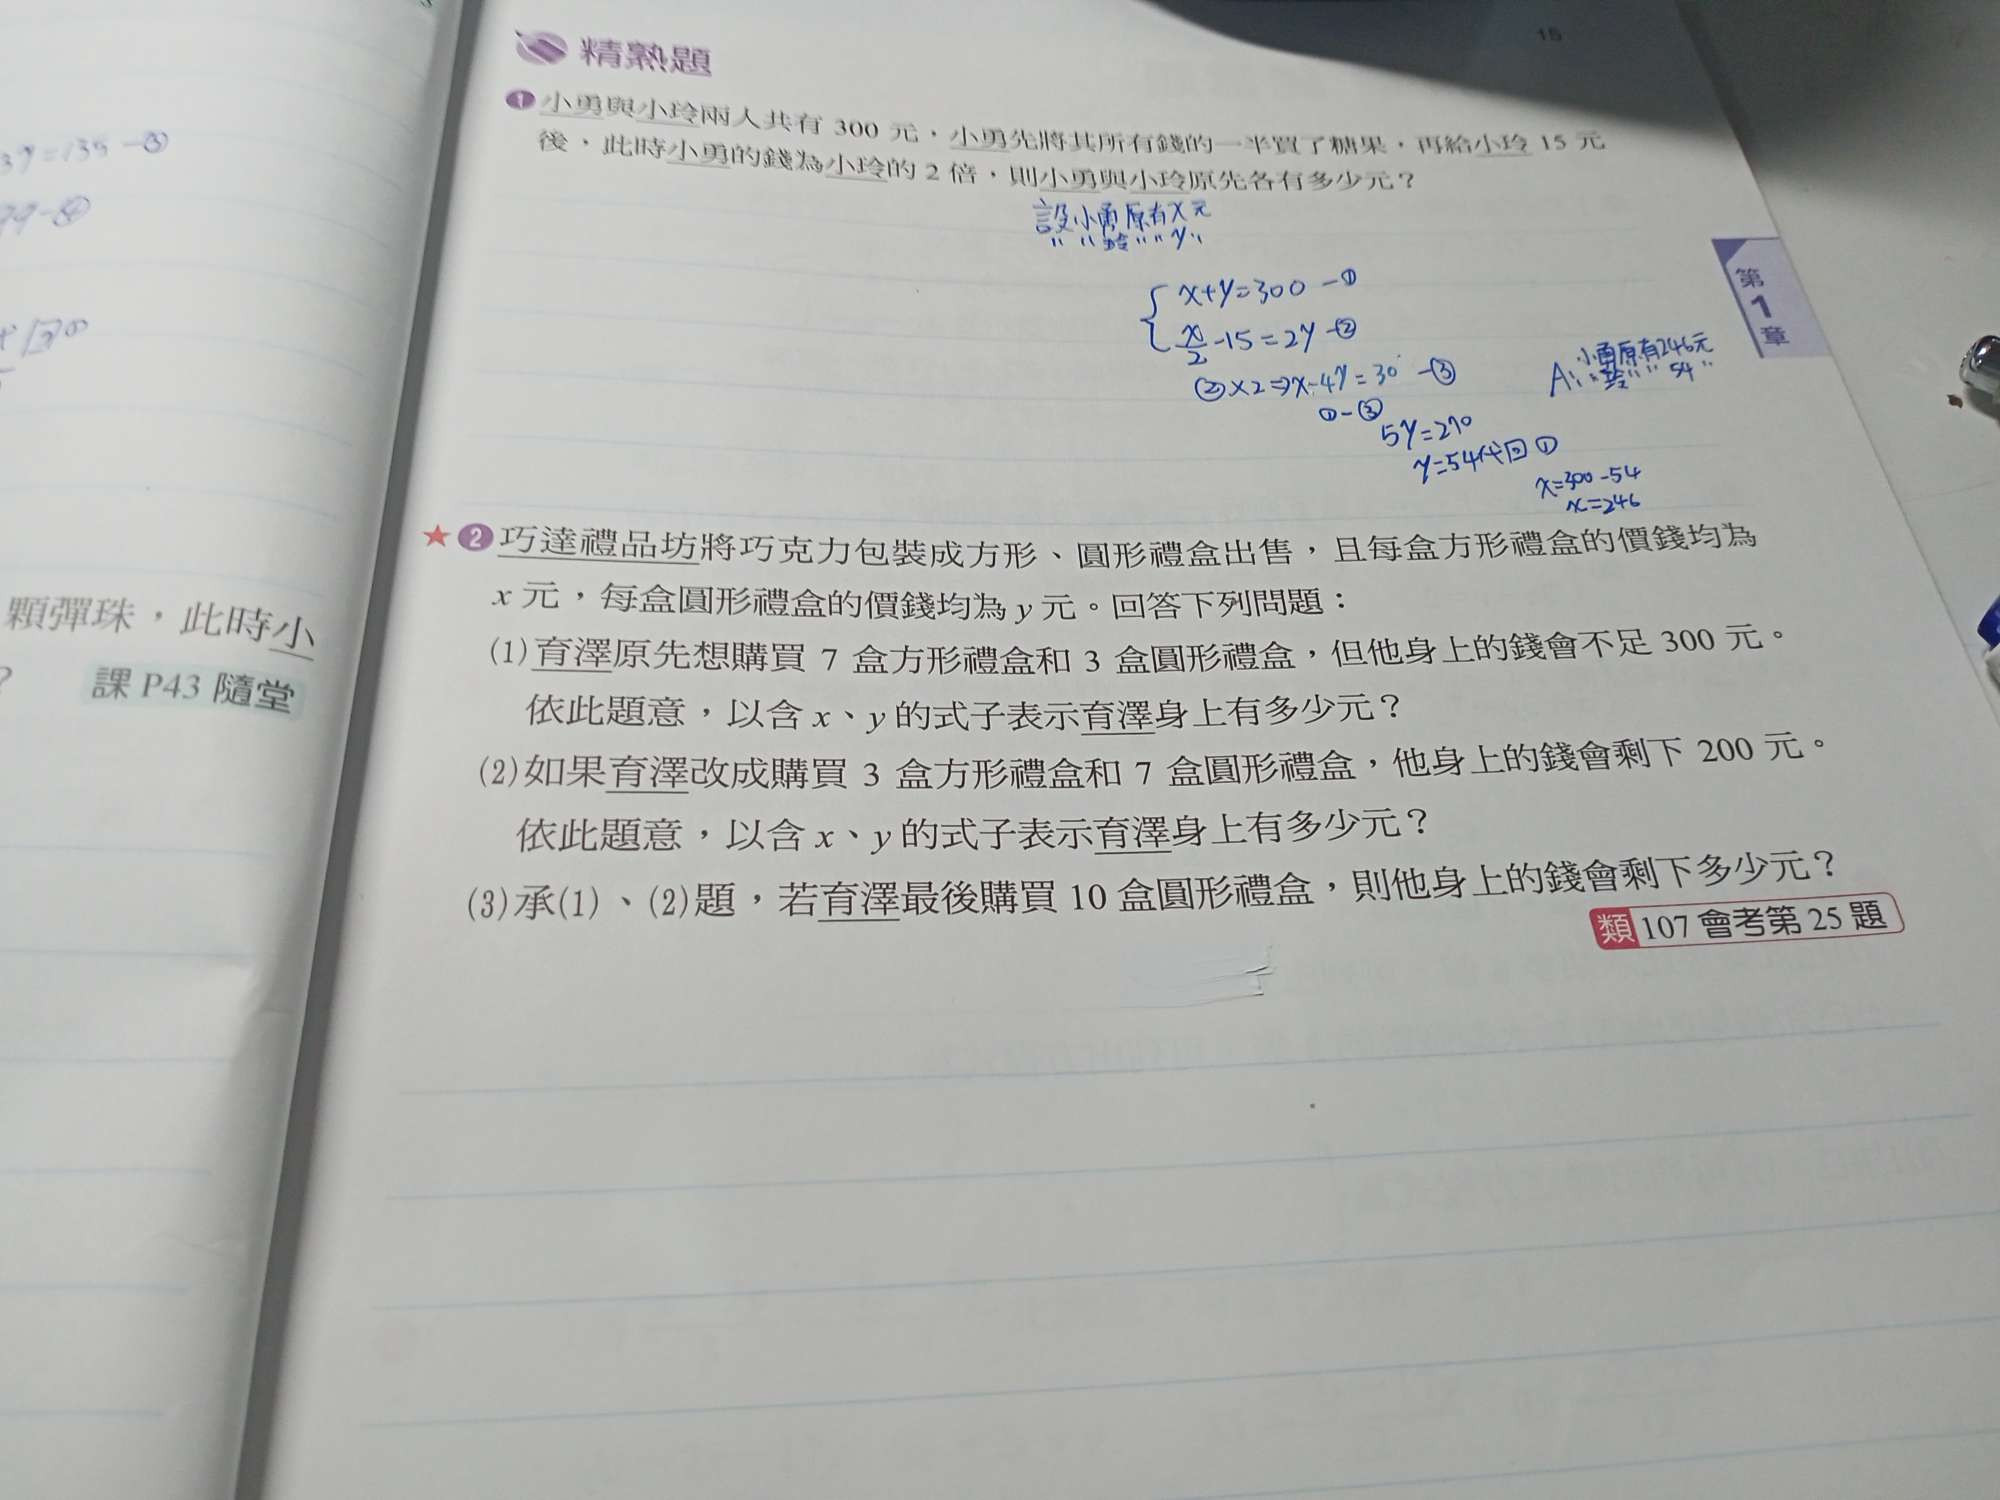 3y=135 -③
99-④
代回①
顆彈珠，此時小
?
課 P43 隨堂
15
精熟題
1 小勇與小玲兩人共有 300 元，小勇先將其所有錢的一半買了糖果，再給小玲 15 元
後，此時小勇的錢為小玲的 2 倍，則小勇與小玲原先各有多少元？
設小勇原有x元
" " 玲 " " y "
x+y=300 -①
x/2 -15=2y -②
②×2⇒x-4y=30 -③
①-③
5y=270
y=54代回①
x=300-54
x=246
A: 小勇原有246元
" 玲 " " 54 "
第
1
章
★ 2 巧達禮品坊將巧克力包裝成方形、圓形禮盒出售，且每盒方形禮盒的價錢均為
x 元，每盒圓形禮盒的價錢均為 y 元。回答下列問題：
(1)育澤原先想購買 7 盒方形禮盒和 3 盒圓形禮盒，但他身上的錢會不足 300 元。
依此題意，以含 x、y 的式子表示育澤身上有多少元？
(2)如果育澤改成購買 3 盒方形禮盒和 7 盒圓形禮盒，他身上的錢會剩下 200 元。
依此題意，以含 x、y 的式子表示育澤身上有多少元？
(3)承(1)、(2)題，若育澤最後購買 10 盒圓形禮盒，則他身上的錢會剩下多少元？
類 107 會考第 25 題